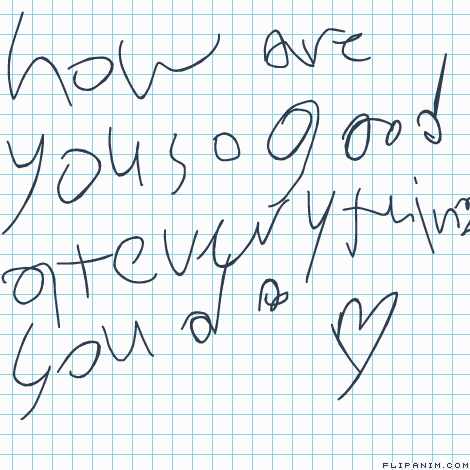 how are
you so good
at everything
you do
FLIPANIM.COM